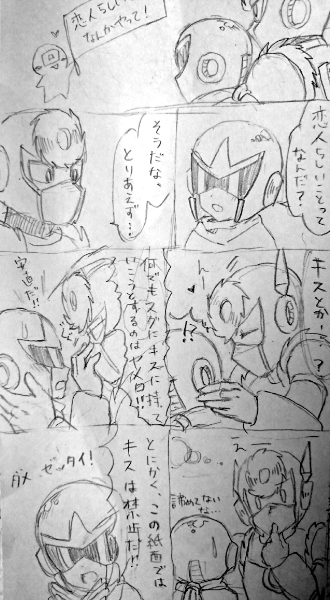 恋人らしい
なんかやって！
恋人らしいことって
なんだ？
そうだな、
とりあえず…
キスとか…？
んー
!?
何でもスグにキスに持って
いこうとするのはヤメロ!!
安直だ!!
えー
諦めてないな…
とにかく、この紙面では
キスは禁止だ!!
ダメ ゼッタイ！